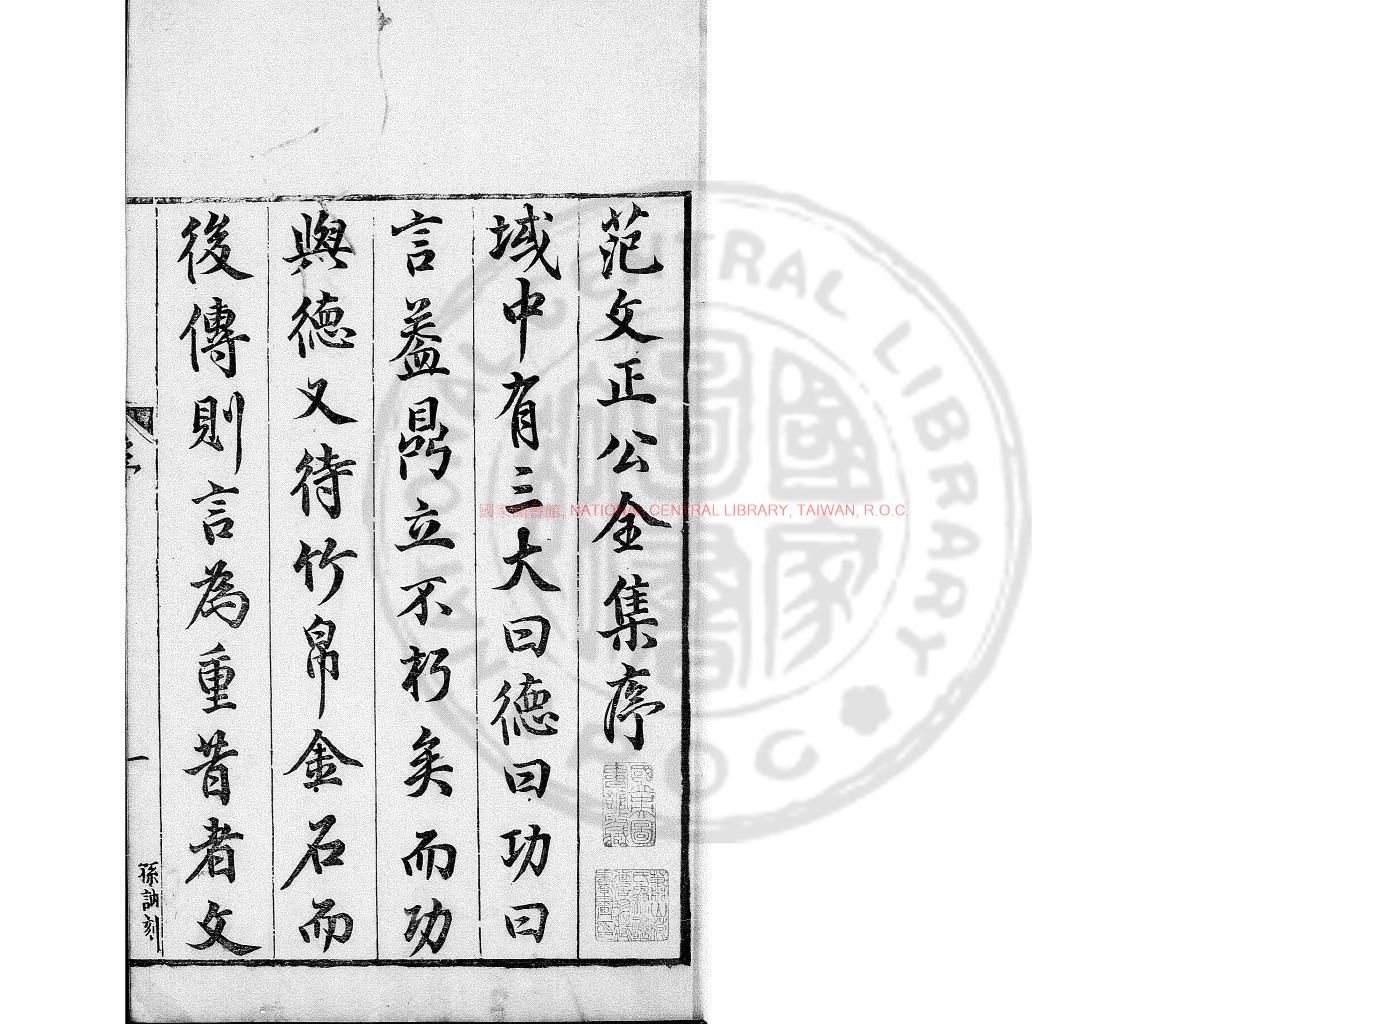 范文正公全集序
域中有三大曰德曰功曰
言葢鼎立不朽矣而功
與德又待竹帛金石而
後傳則言為重昔者文
序
一
孫訥刻
國家圖書館, NATIONAL CENTRAL LIBRARY, TAIWAN, R.O.C